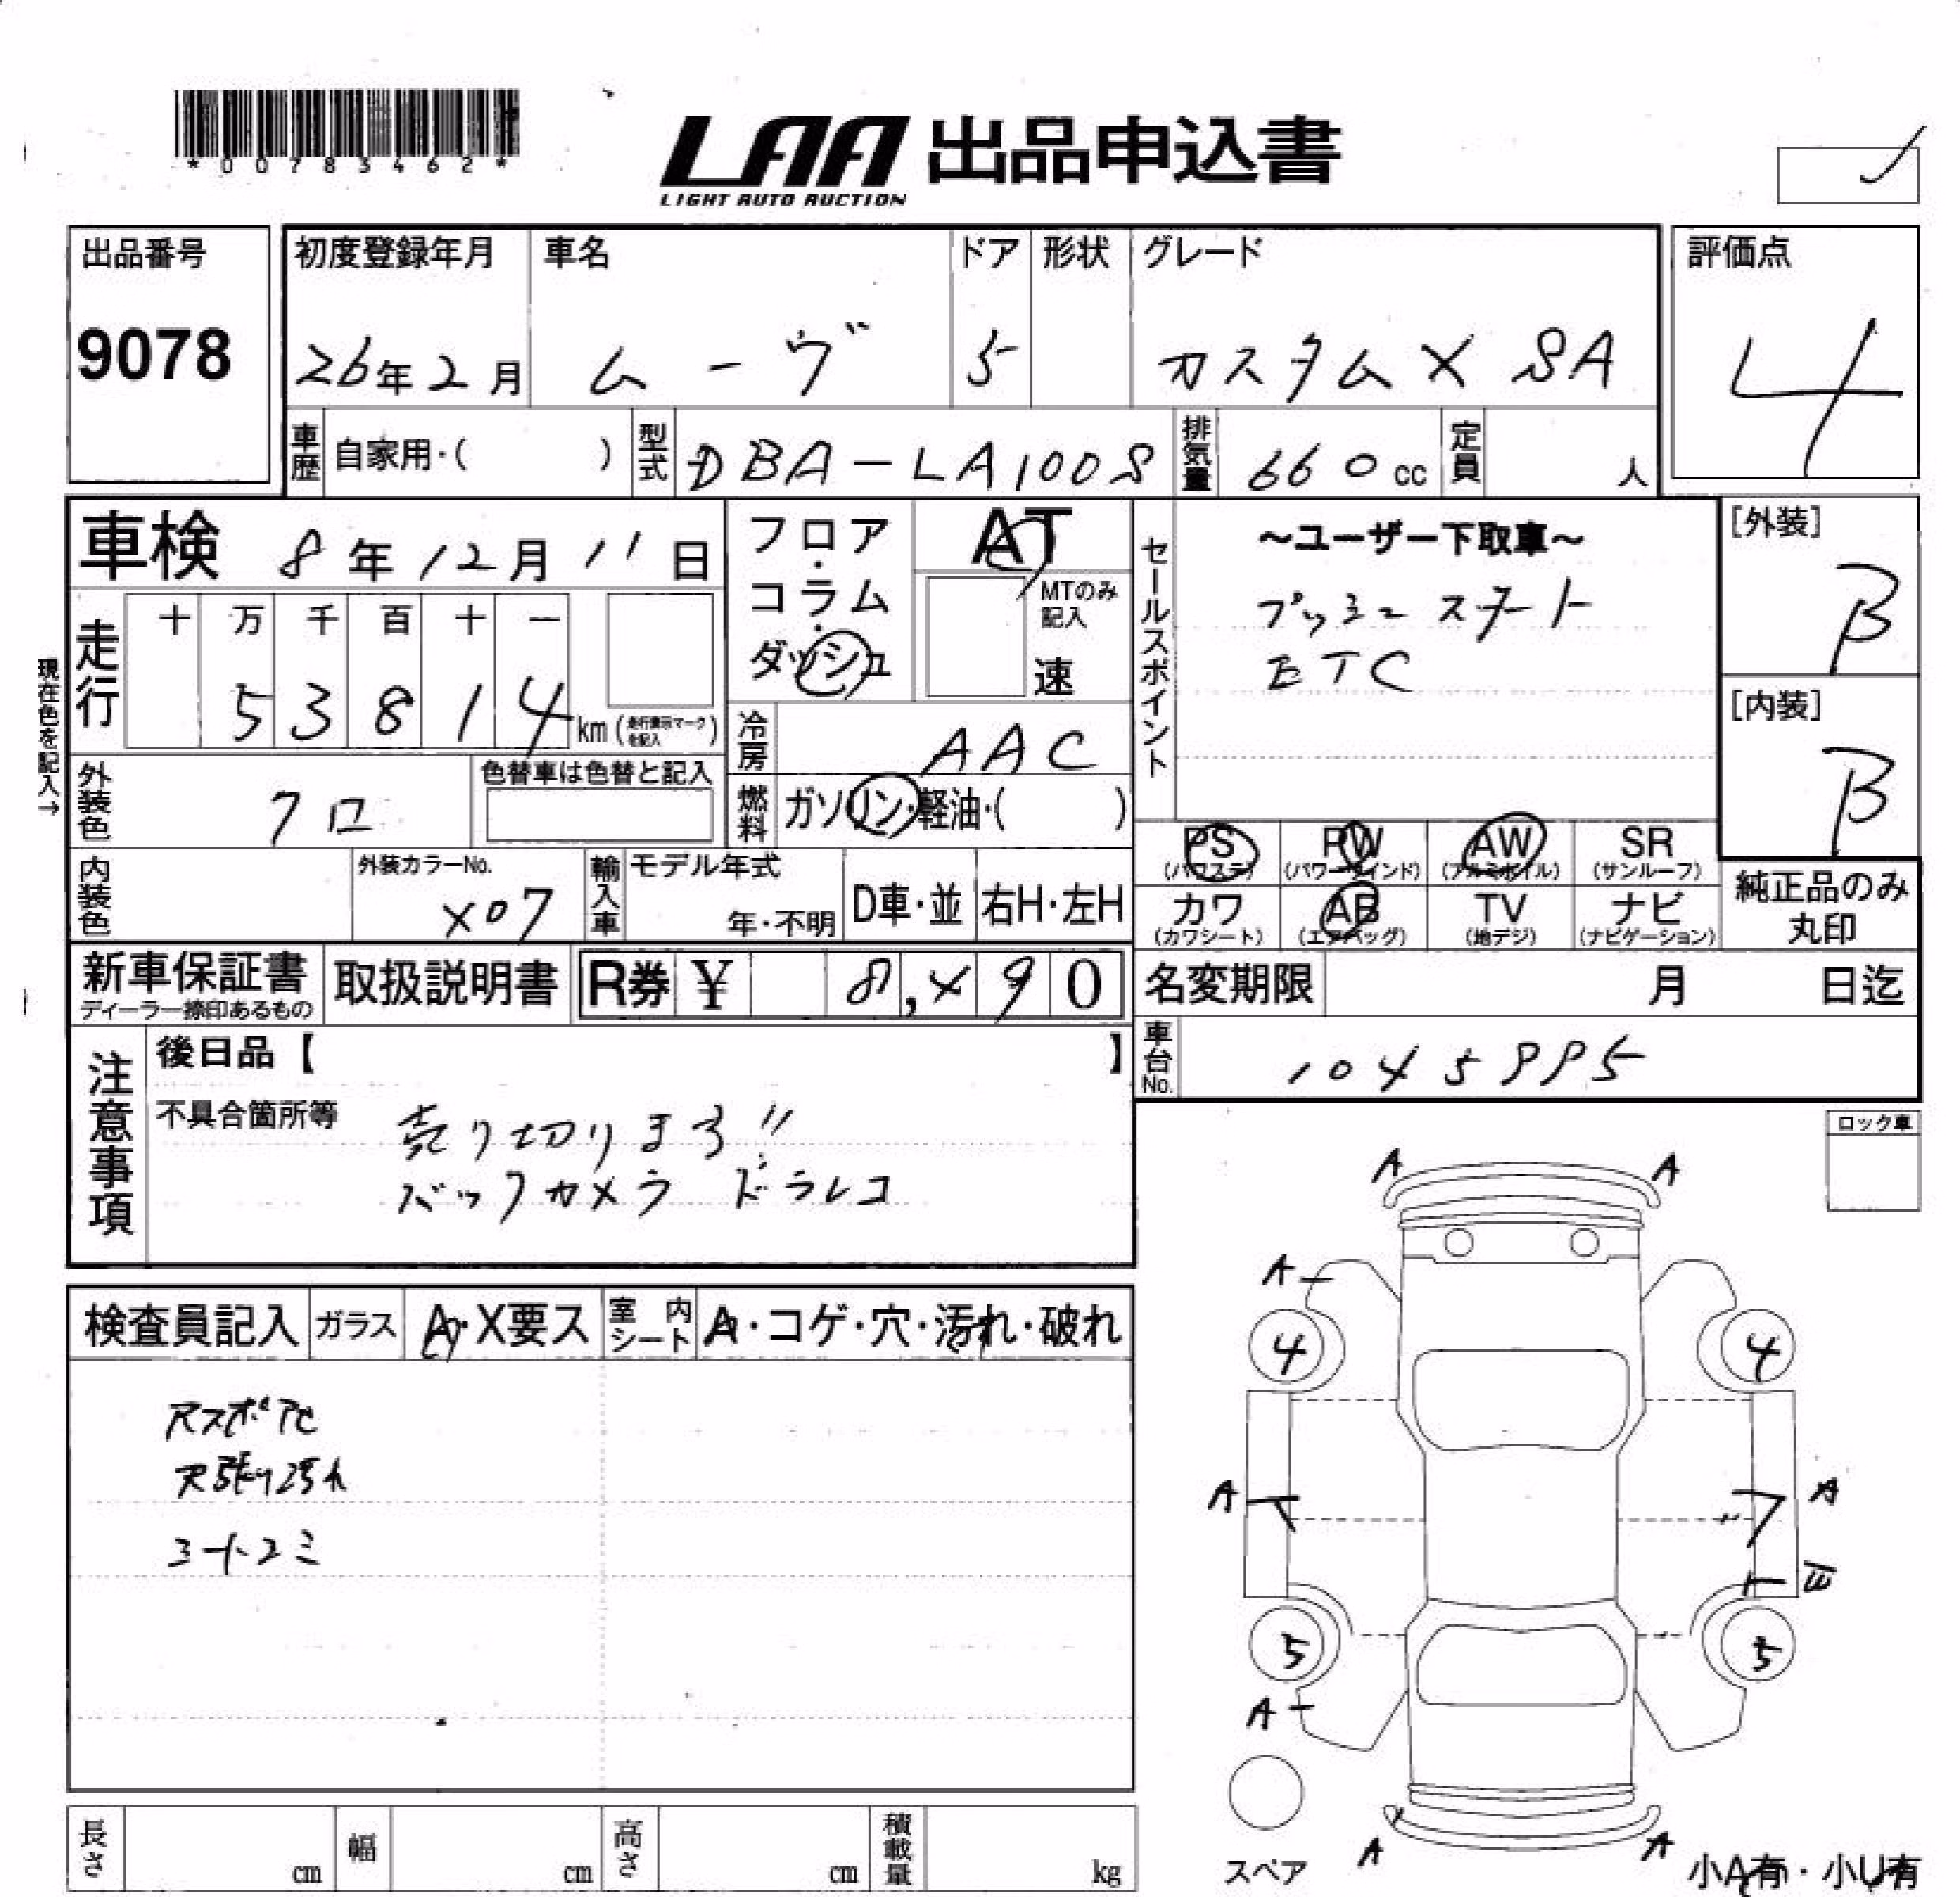 *00783462*
LAA 出品申込書
LIGHT AUTO AUCTION
出品番号
9078
初度登録年月
26年2月
車名
ムーヴ
ドア
5
形状
グレード
カスタムX SA
評価点
4
車歴
自家用・( )
型式
DBA-LA100S
排気量
660cc
定員
人
車検 8年12月11日
走行
十 万 千 百 十 一
5 3 8 1 4 km (走行表示マークを記入)
現在色を記入→
フロア・
コラム・
ダッシュ
AT
MTのみ記入
速
冷房
AAC
燃料
ガソリン・軽油・( )
セールスポイント
~ユーザー下取車~
プッシュスタート
ETC
[外装]
B
[内装]
B
外装色
クロ
色替車は色替と記入
内装色
外装カラーNo.
X07
輸入車
モデル年式
年・不明
D車・並
右H・左H
PS
(パワステ)
PW
(パワーウインド)
AW
(アルミホイル)
SR
(サンルーフ)
カワ
(カワシート)
AB
(エアバッグ)
TV
(地デジ)
ナビ
(ナビゲーション)
純正品のみ
丸印
新車保証書
ディーラー捺印あるもの
取扱説明書
R券 ¥ 8,×90
名変期限
月 日迄
車台No.
注意事項
後日品【 】
不具合箇所等
売り切ります!!
バックカメラ ドラレコ
ロック車
検査員記入
ガラス
A・X要ス
室内シート
A・コゲ・穴・汚れ・破れ
天張り汚れ
A A
A
4 4
A A
5 5
A
A A
スペア
小A有・小U有
長さ
cm
幅
cm
高さ
cm
積載量
kg